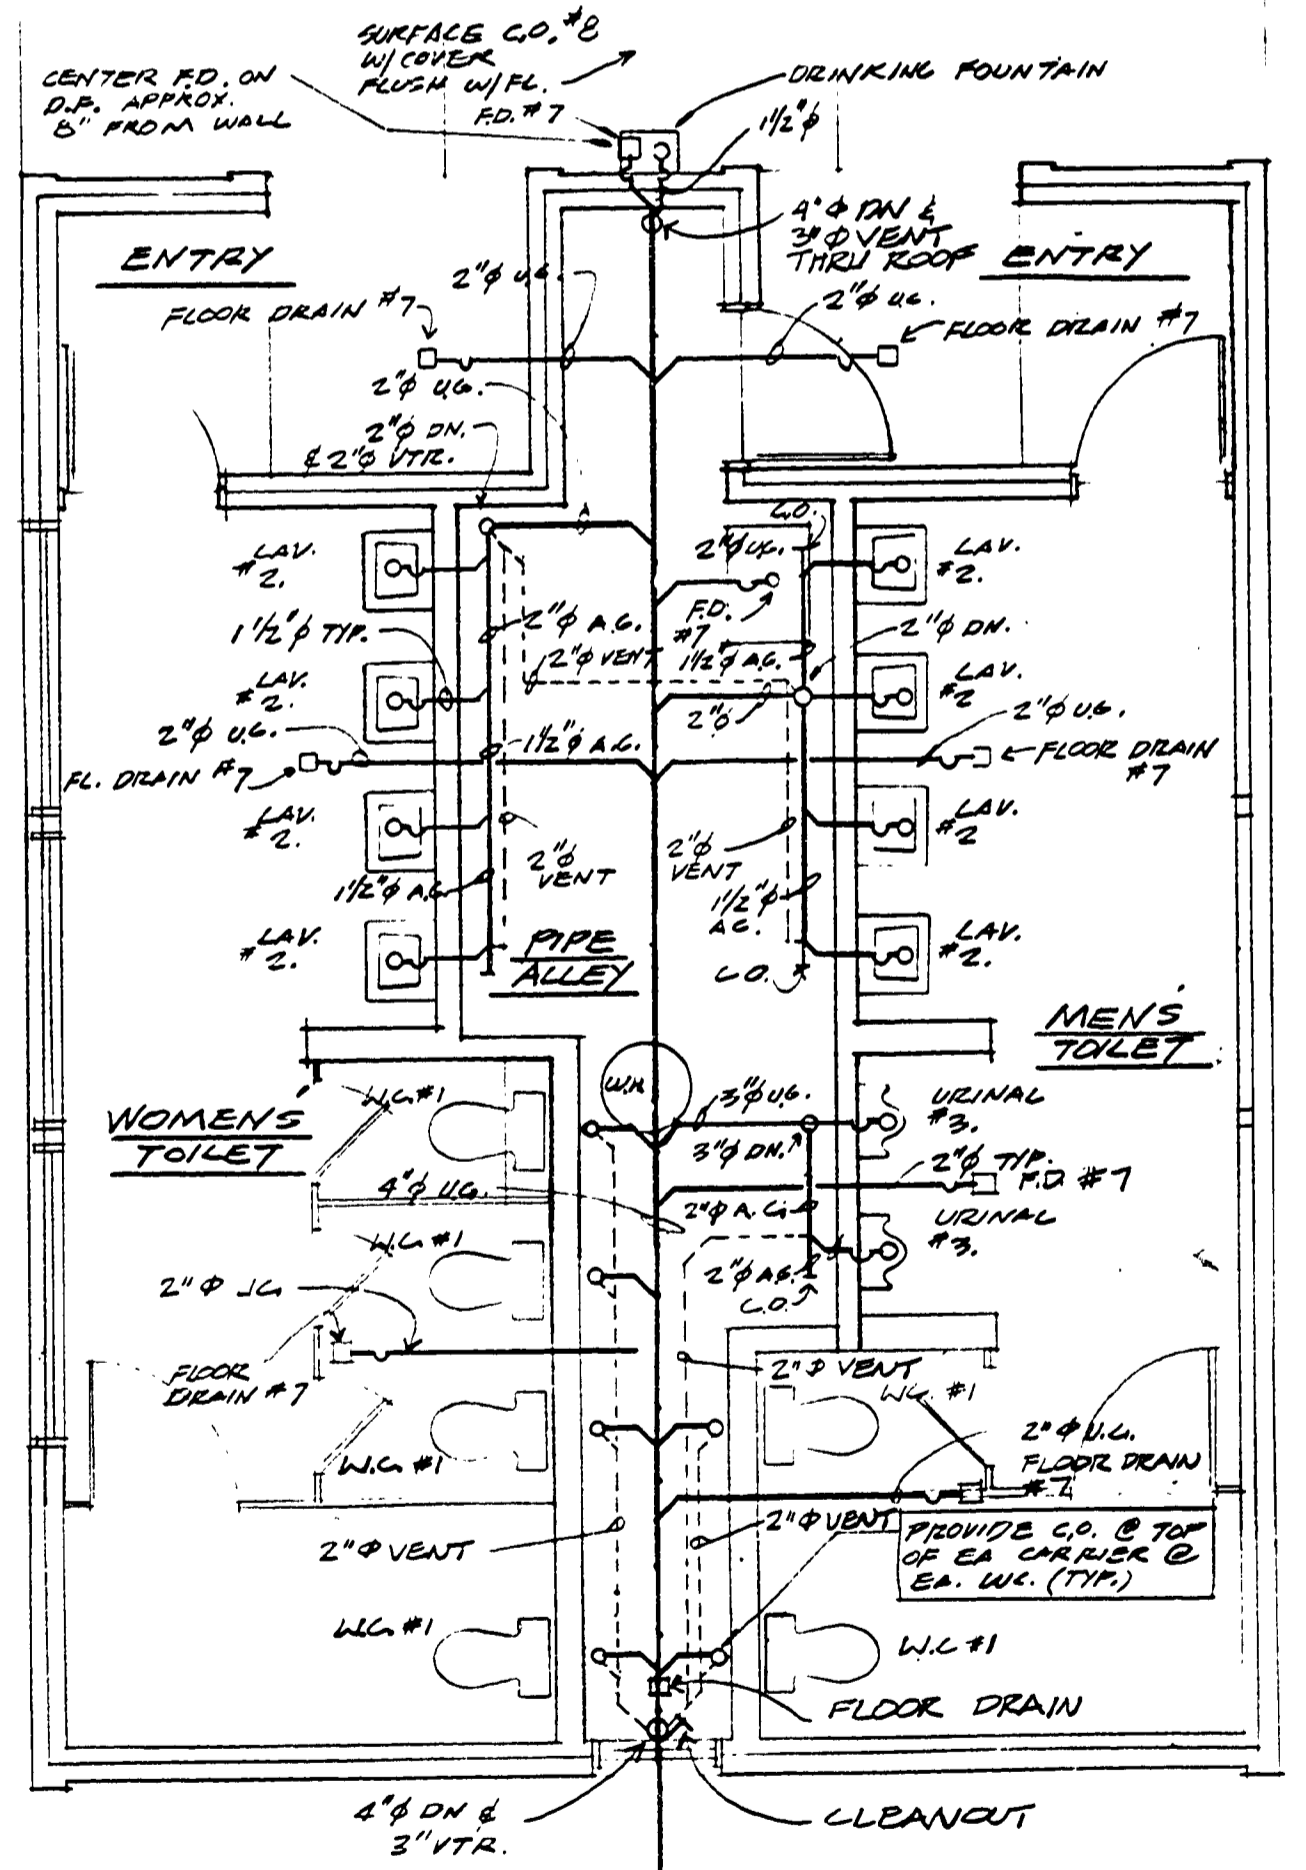 SURFACE C.O. #8
W/ COVER
FLUSH W/ FL.
F.D. #7
CENTER F.D. ON
D.F. APPROX.
8" FROM WALL
DRINKING FOUNTAIN
1 1/2"φ
4"φ DN &
3"φ VENT
THRU ROOF
ENTRY
ENTRY
2"φ U.G.
FLOOR DRAIN #7
2"φ U.G.
FLOOR DRAIN #7
2"φ U.G.
2"φ DN.
& 2"φ VTR.
C.O.
LAV.
#2.
2"φ U.G.
LAV.
#2.
F.D.
#7
1 1/2"φ TYP.
2"φ A.G.
2"φ VENT
1 1/2"φ A.G.
2"φ DN.
LAV.
#2.
2"φ
LAV.
#2
2"φ U.G.
FL. DRAIN #7
1 1/2"φ A.G.
2"φ U.G.
FLOOR DRAIN
#7
LAV.
#2.
2"φ
VENT
2"φ
VENT
LAV.
#2
1 1/2"φ A.G.
1 1/2"φ
A.G.
LAV.
#2.
PIPE
ALLEY
C.O.
LAV.
#2.
MEN'S
TOILET
WOMEN'S
TOILET
W.C. #1
W.H.
3"φ U.G.
URINAL
#3.
3"φ DN.
2"φ TYP.
F.D. #7
4"φ U.G.
2"φ A.G.
URINAL
#3.
W.C. #1
2"φ A.G.
C.O.
2"φ UG
FLOOR
DRAIN #7
2"φ VENT
W.C. #1
2"φ U.G.
FLOOR DRAIN
#7
W.C. #1
2"φ VENT
2"φ VENT
PROVIDE C.O. @ TOP
OF EA CARRIER @
EA. W.C. (TYP.)
W.C. #1
W.C #1
FLOOR DRAIN
4"φ DN &
3" VTR.
CLEANOUT